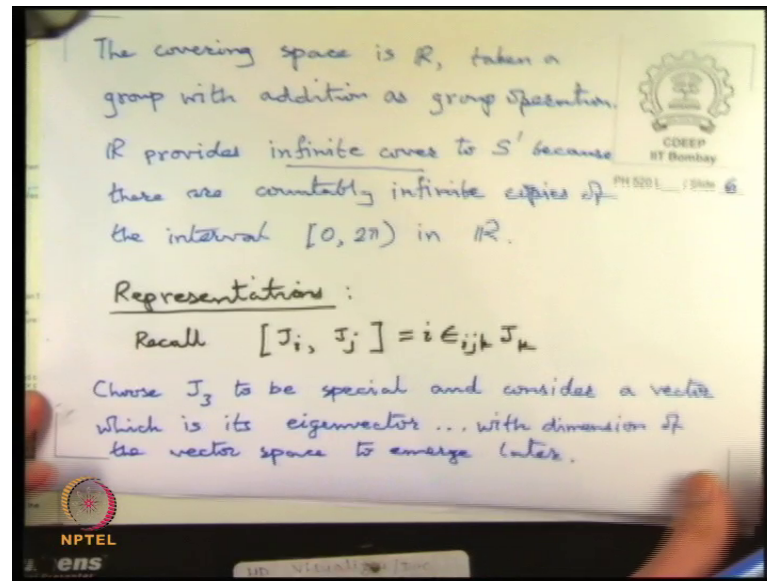 The covering space is ℝ, taken a
group with addition as group operation.
ℝ provides infinite cover to S' because
there are countably infinite copies of
the interval [0, 2π) in ℝ.
CDEEP
IIT Bombay
PH 520 L___ / Slide 6
Representations :
Recall [J_i, J_j] = i ∈_ijk J_k
Choose J_3 to be special and consider a vector
which is its eigenvector ... with dimension of
the vector space to emerge later.
NPTEL
ens